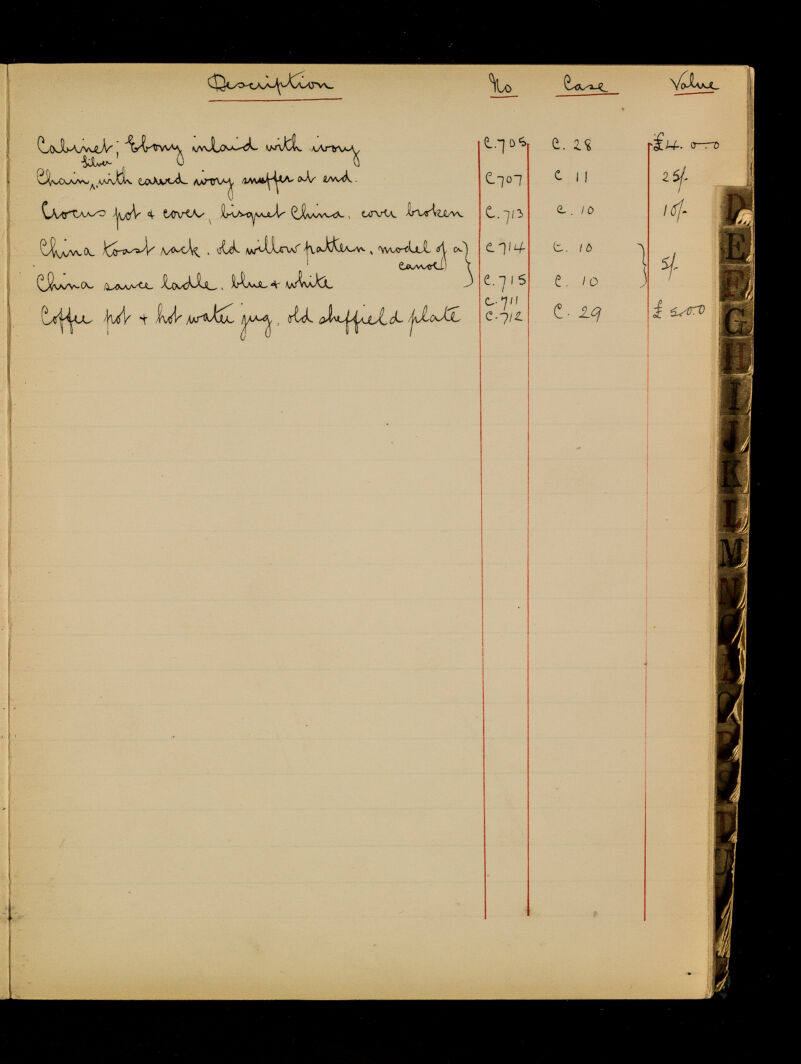 Description No Case Value
Cabinet; Ebony inlaid with ivory C.705 C. 28 £4. 0-:-0
Silver
Chain, with carved ivory snuffer at end. C707 C 11 25/-
Crocus pot & cover, bisquet China, cover broken C.713 C. 10 10/-
China toast rack, old willow pattern, model of a C.714 C. 10
canoe 5/-
China sauce ladle, blue & white C.715 C. 10
C.711
Coffee pot & hot water jug, old sheffield plate C.712 C. 29 £ 5.0.0
D
E
F
G
H
I
J
K
L
M
N